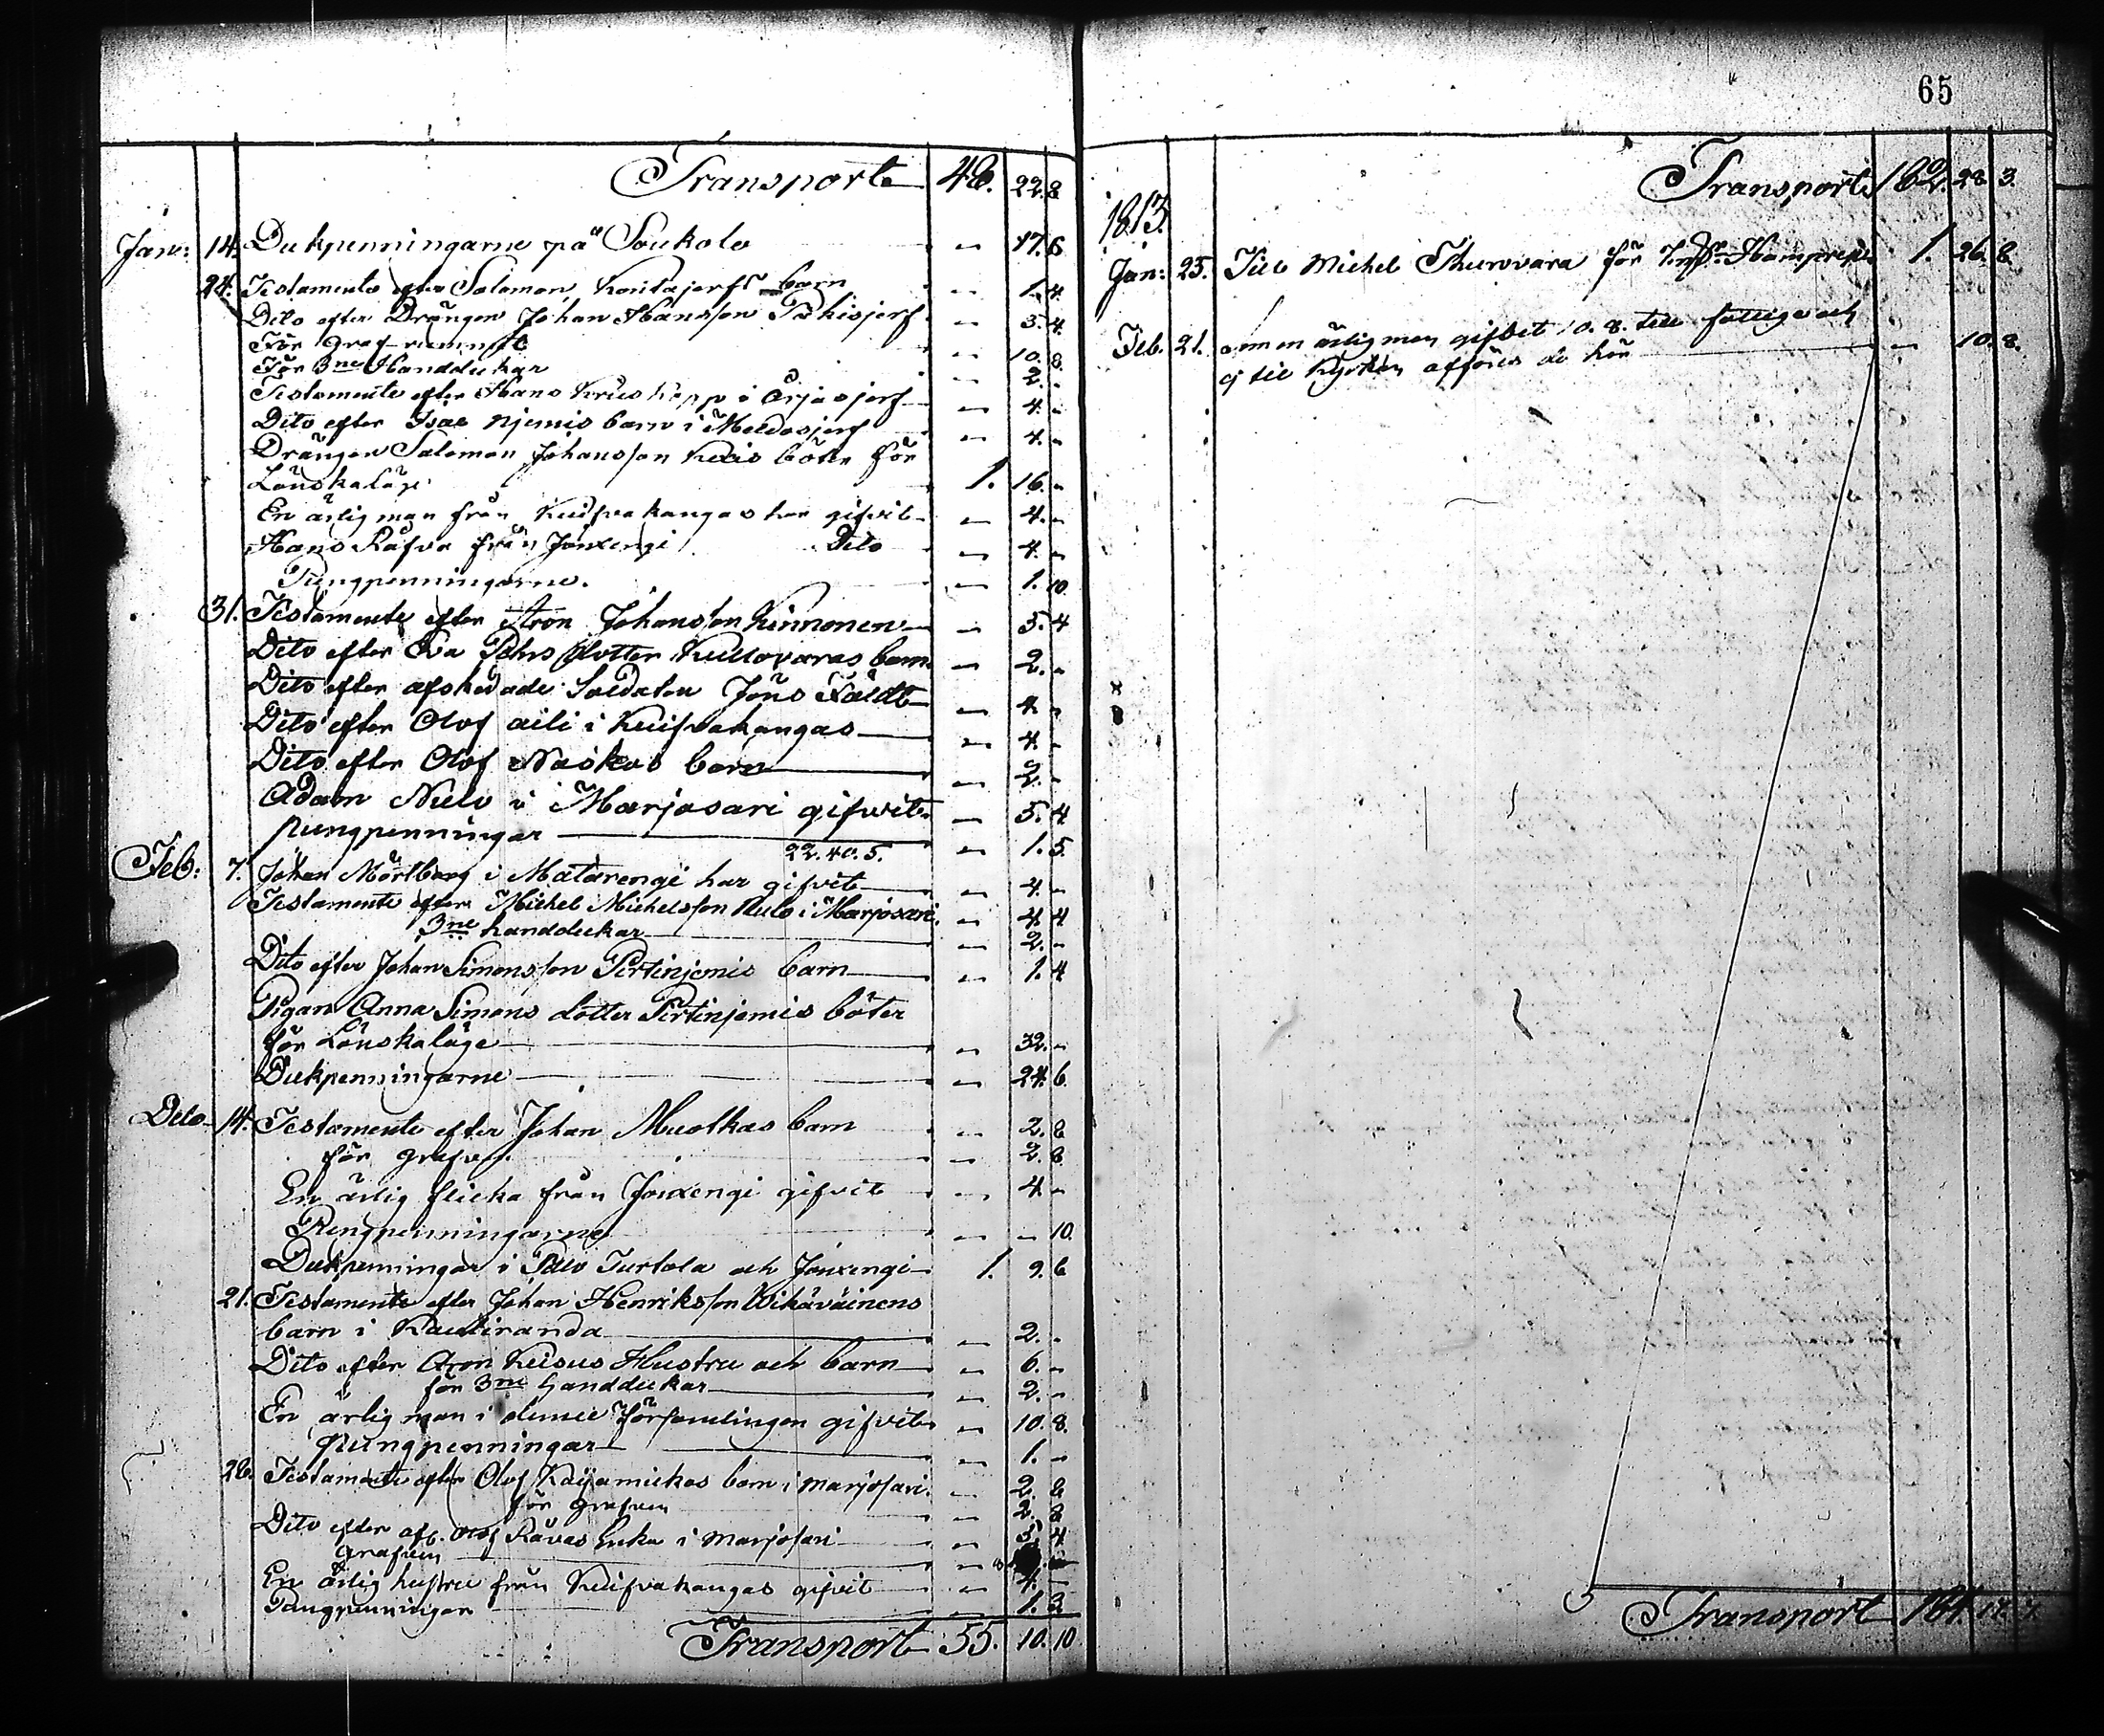 Transport 46. 22. 8
Jan: 14. Dukpenningarne på Soukolo " 17. 6
24. Testamente efter Salomon Kontajerfs barn " 1. 4.
Dito efter Drängen Johan Hansson Pakisjerf " 5. 4.
För graf " 10. 8.
För 3ne Handdukar " 2. "
Testamente efter Hans i Orjasjerf " 4. "
Dito efter Isac Njemis barn i Meldosjerf " 4. "
Drängen Salomon Johansson böter för
Lönskaläge 1. 16. "
En ärlig man från Kuifvakangas har gifvit " 4. "
Hans Räfva från Jouxengi Dito " 4. "
Pungpenningarne. " 1. 10.
31. Testamente efter Aron Johansson Kinnonen " 5. 4
Dito efter Eva Pehrs dotter Kullovaras barn " 2. "
Dito efter afskedade Soldaten Jöns Fäldt " 4. "
Dito efter Olof Aili i Kuifvakangas " 4. "
Dito efter Olof Naskas barn " 2. "
Adam Nielo i Marjosari gifvit " 5. 4
pungpenningar " 1. 5.
22. 40. 5.
Feb: 7. Johan Mörtberg i Matarengi har gifvit " 4. "
Testamente efter Michel Michelsson Nielo i Marjosari " 4. 4
3ne handdukar " 2. "
Dito efter Johan Simonsson Pertinjemis barn " 1. 4
Pigan Anna Simons dotter Pertinjemis böter
för Lönskaläge " 32. "
Dukpenningarne " 24. 6.
Dito 14. Testamente efter Johan Muotkas barn " 2. 8
för grafven " 2. 8.
En ärlig flicka från Jouxengi gifvit " 4. "
Pengpenningarne " " 10.
Dukpenningar i Pello Turtola och Jouxengi 1. 9. 6
21. Testamente efter Johan Henriksson Wihäväinens
barn i Kauliranda " 2. "
Dito efter Aron Kuisus Hustru och barn " 6. "
för 3ne handdukar " 2. "
En ärlig man i denne Församlingen gifvit " 10. 8.
pungpenningar " 1. "
28. Testamente efter Olof barn i Marjosari " 2. 8
för grafven " 2. 8
Dito efter afl. Olof Rävas Enka i Marjosari " 5. 4
grafven
En ärlig hustru från Kuifvakangas gifvit " 4. "
Pungpenningar " 1. 3.
Transport 55. 10. 10
65
Transport 162. 28. 3.
1813.
Jan: 25. Till Michel Thurovara för 1. 26. 8.
Feb. 21. en ärlig man gifvet 10. 8. till fattige och
ej till Kyrkan afföres de här " 10. 8.
Transport 164. 17. 7.